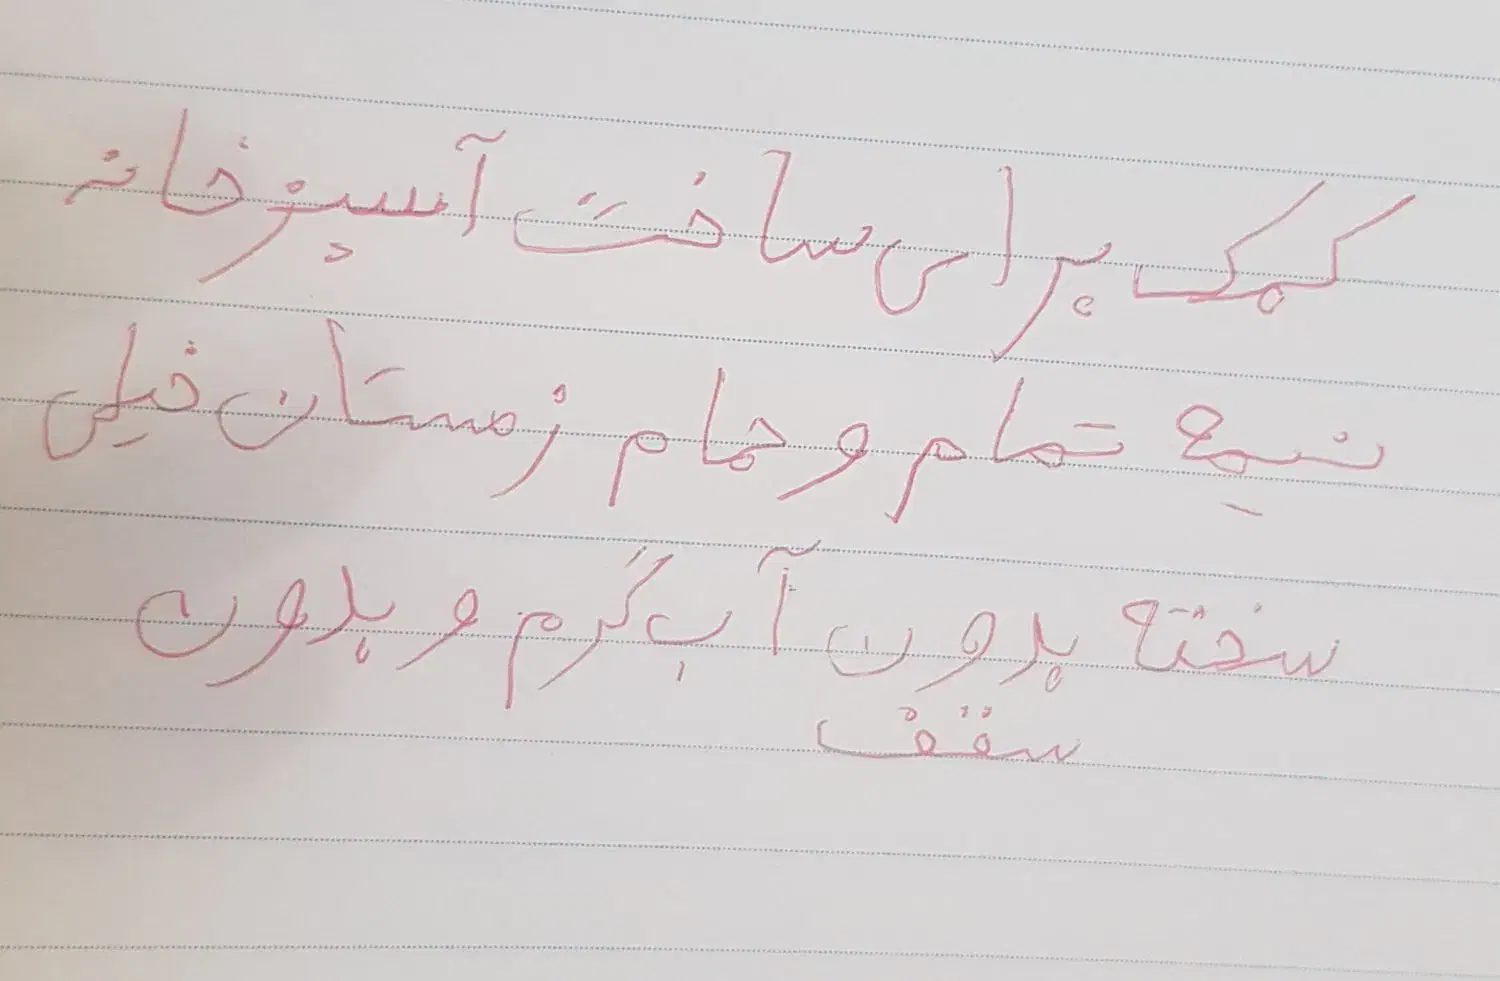 کمک برای ساخت آسپزخانه
نیمه تمام و حمام زمستان خیلی
سخته بدون آب گرم و بدون
سقف